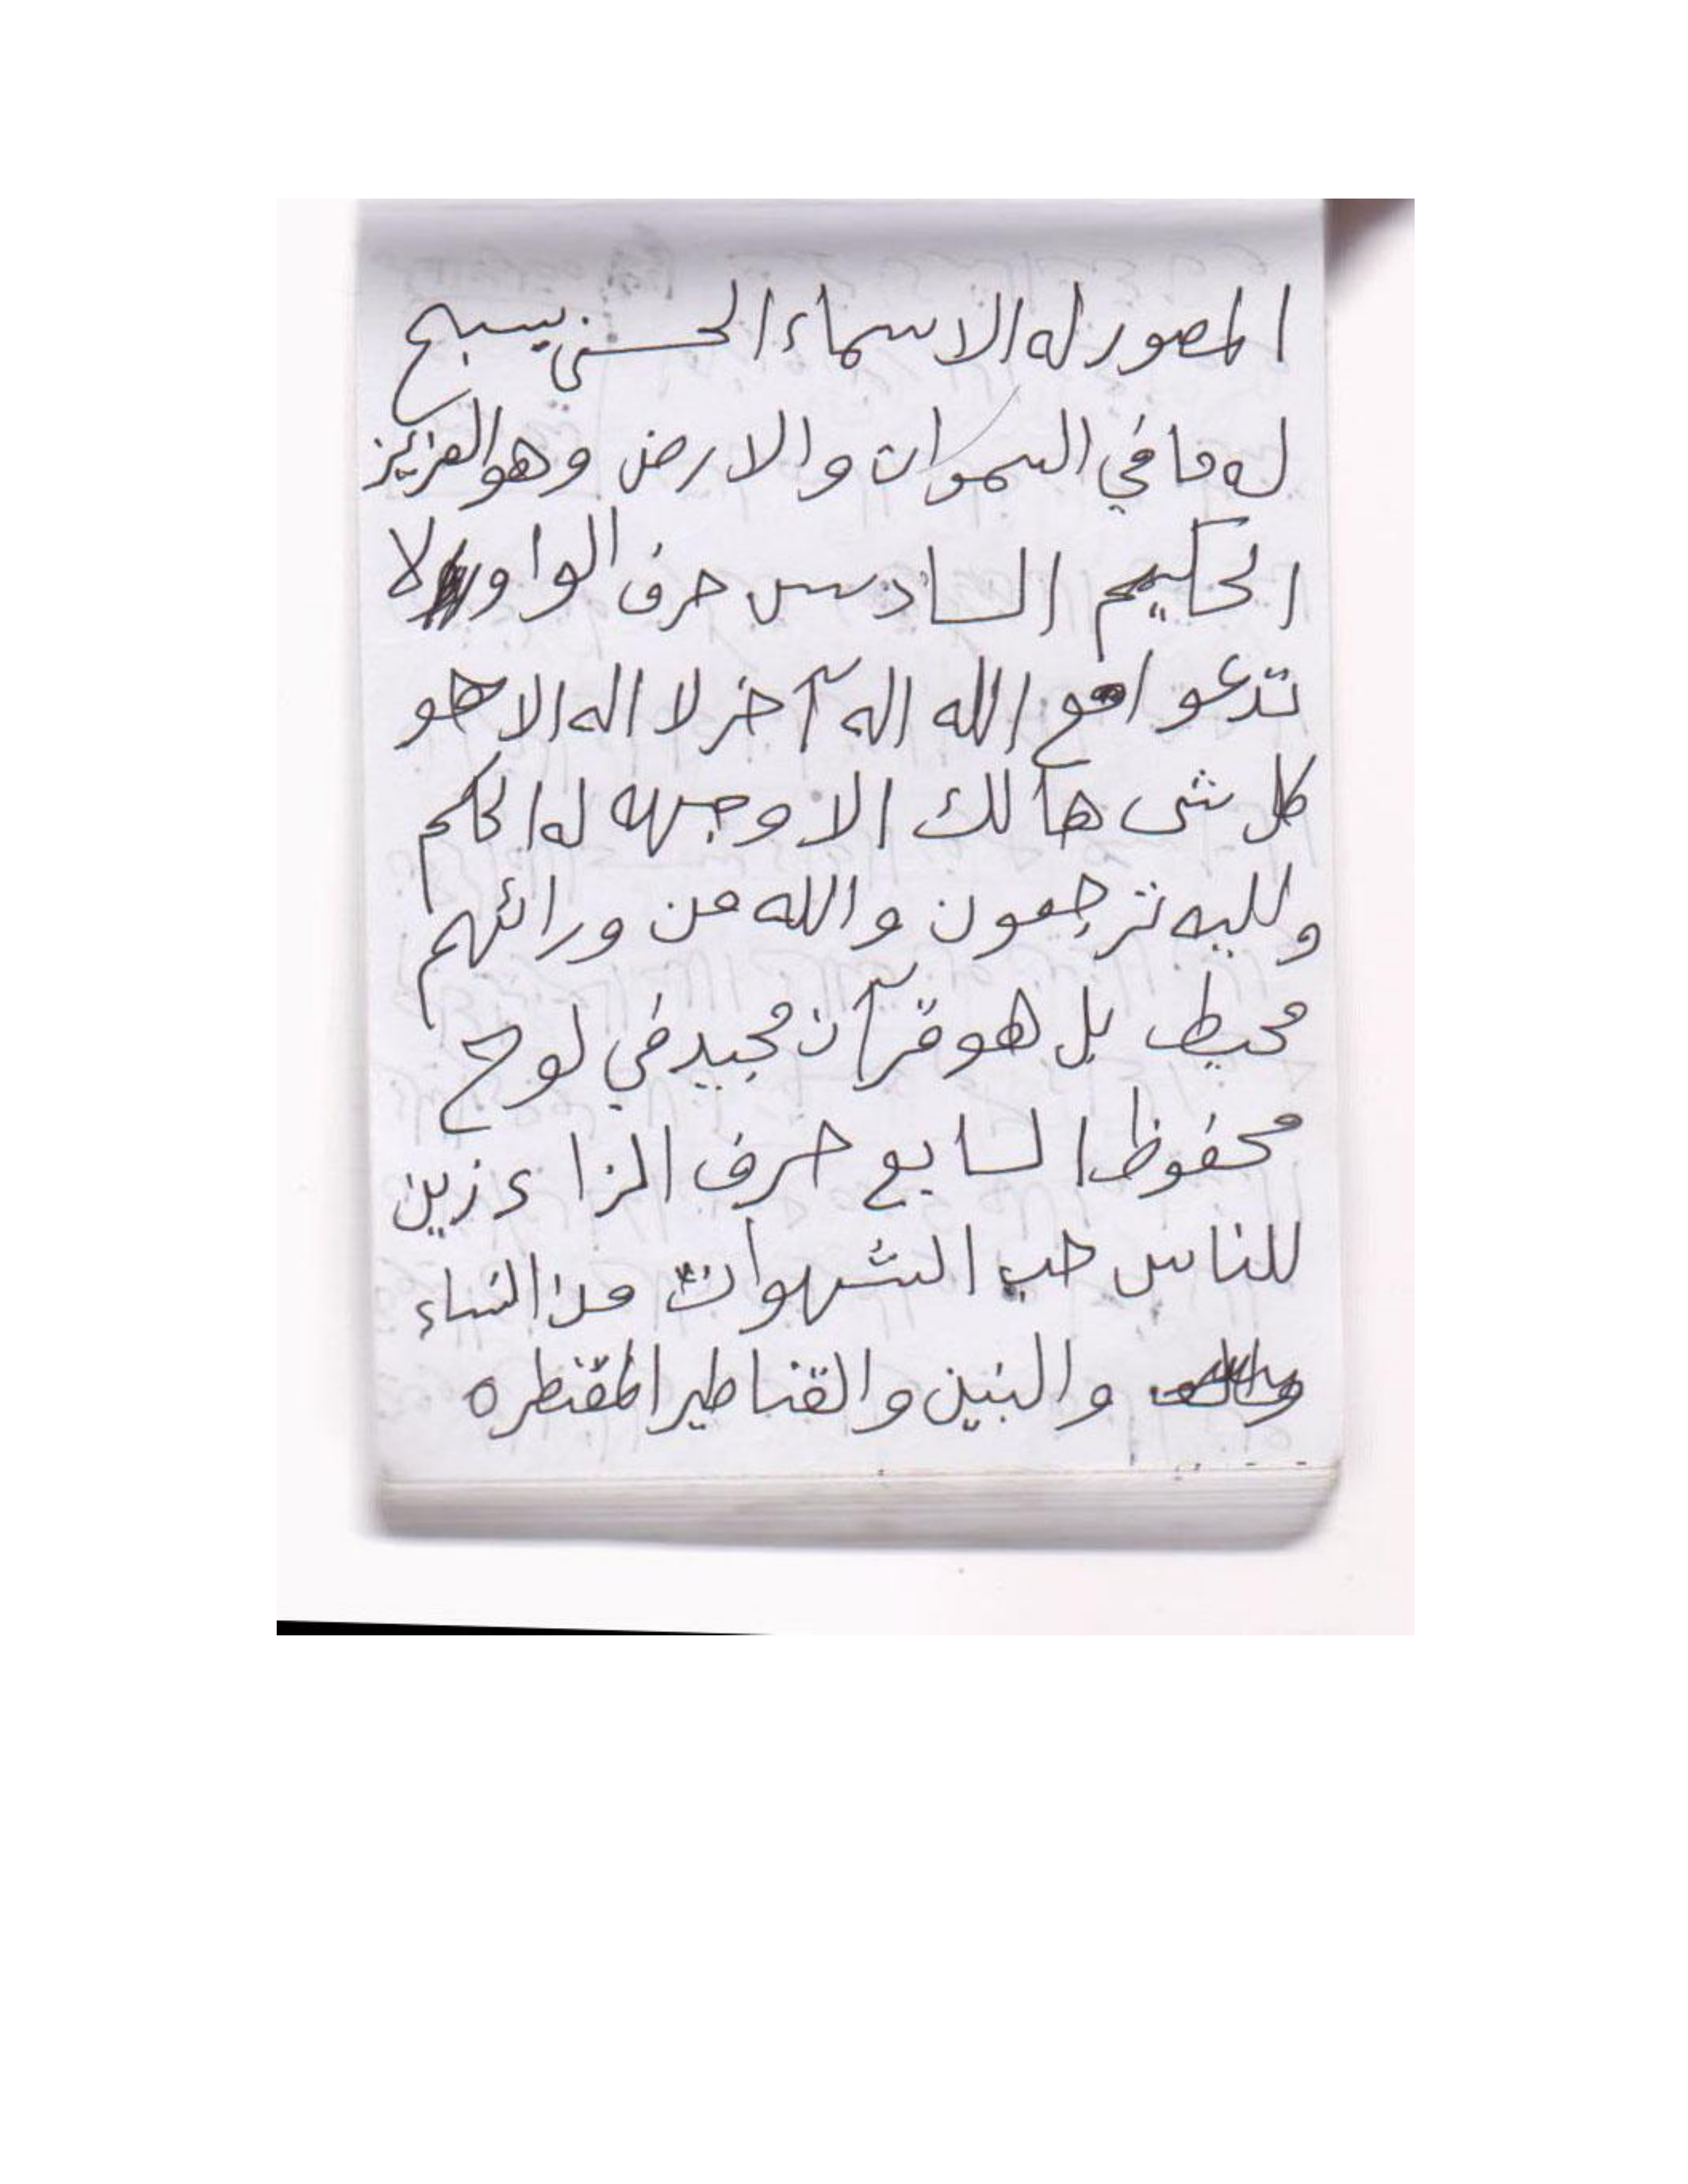 المصور له الاسماء الحسنى يسبح
له ما في السموات والارض وهو العزيز
الحكيم السادس حرف الواو ولا
تدعوا مع الله اله آخر لا اله الا هو
كل شى هالك الا وجهه له الحكم
ولليه ترجعون والله من ورائهم
محيط بل هو قرآن مجيد في لوح
محفوظ السابع حرف الزاء زين
للناس حب الشهوات من النساء
والبنين والقناطير المقنطره